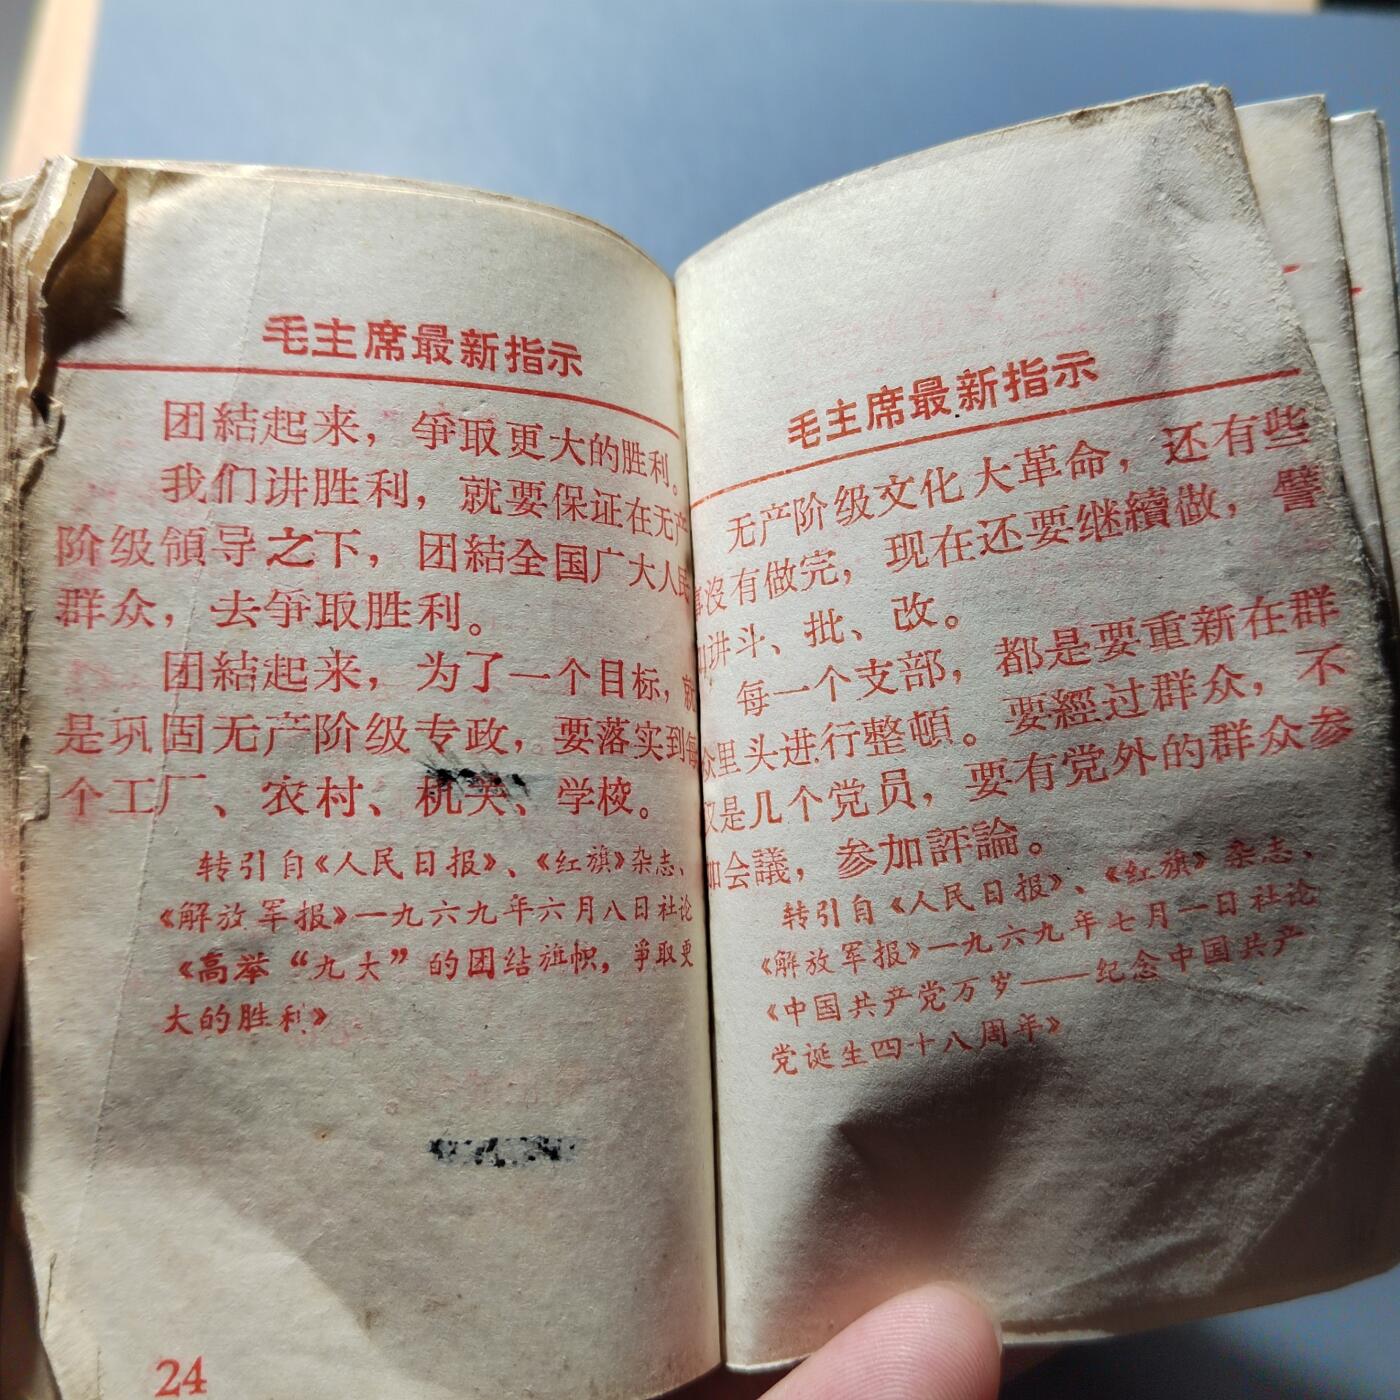 毛主席最新指示
团結起来，爭取更大的胜利。
我们讲胜利，就要保证在无产
阶级領导之下，团結全国广大人民
群众，去爭取胜利。
团結起来，为了一个目标，就
是巩固无产阶级专政，要落实到每
个工厂、农村、机关、学校。
转引自《人民日报》、《红旗》杂志、
《解放军报》一九六九年六月八日社论
《高举“九大”的团结旗帜，爭取更
大的胜利》
24
毛主席最新指示
无产阶级文化大革命，还有些
沒有做完，现在还要继續做，譬
讲斗、批、改。
每一个支部，都是要重新在群
众里头进行整頓。要經过群众，不
仅是几个党员，要有党外的群众参
加会議，参加評論。
转引自《人民日报》、《红旗》杂志、
《解放军报》一九六九年七月一日社论
《中国共产党万岁——纪念中国共产
党诞生四十八周年》